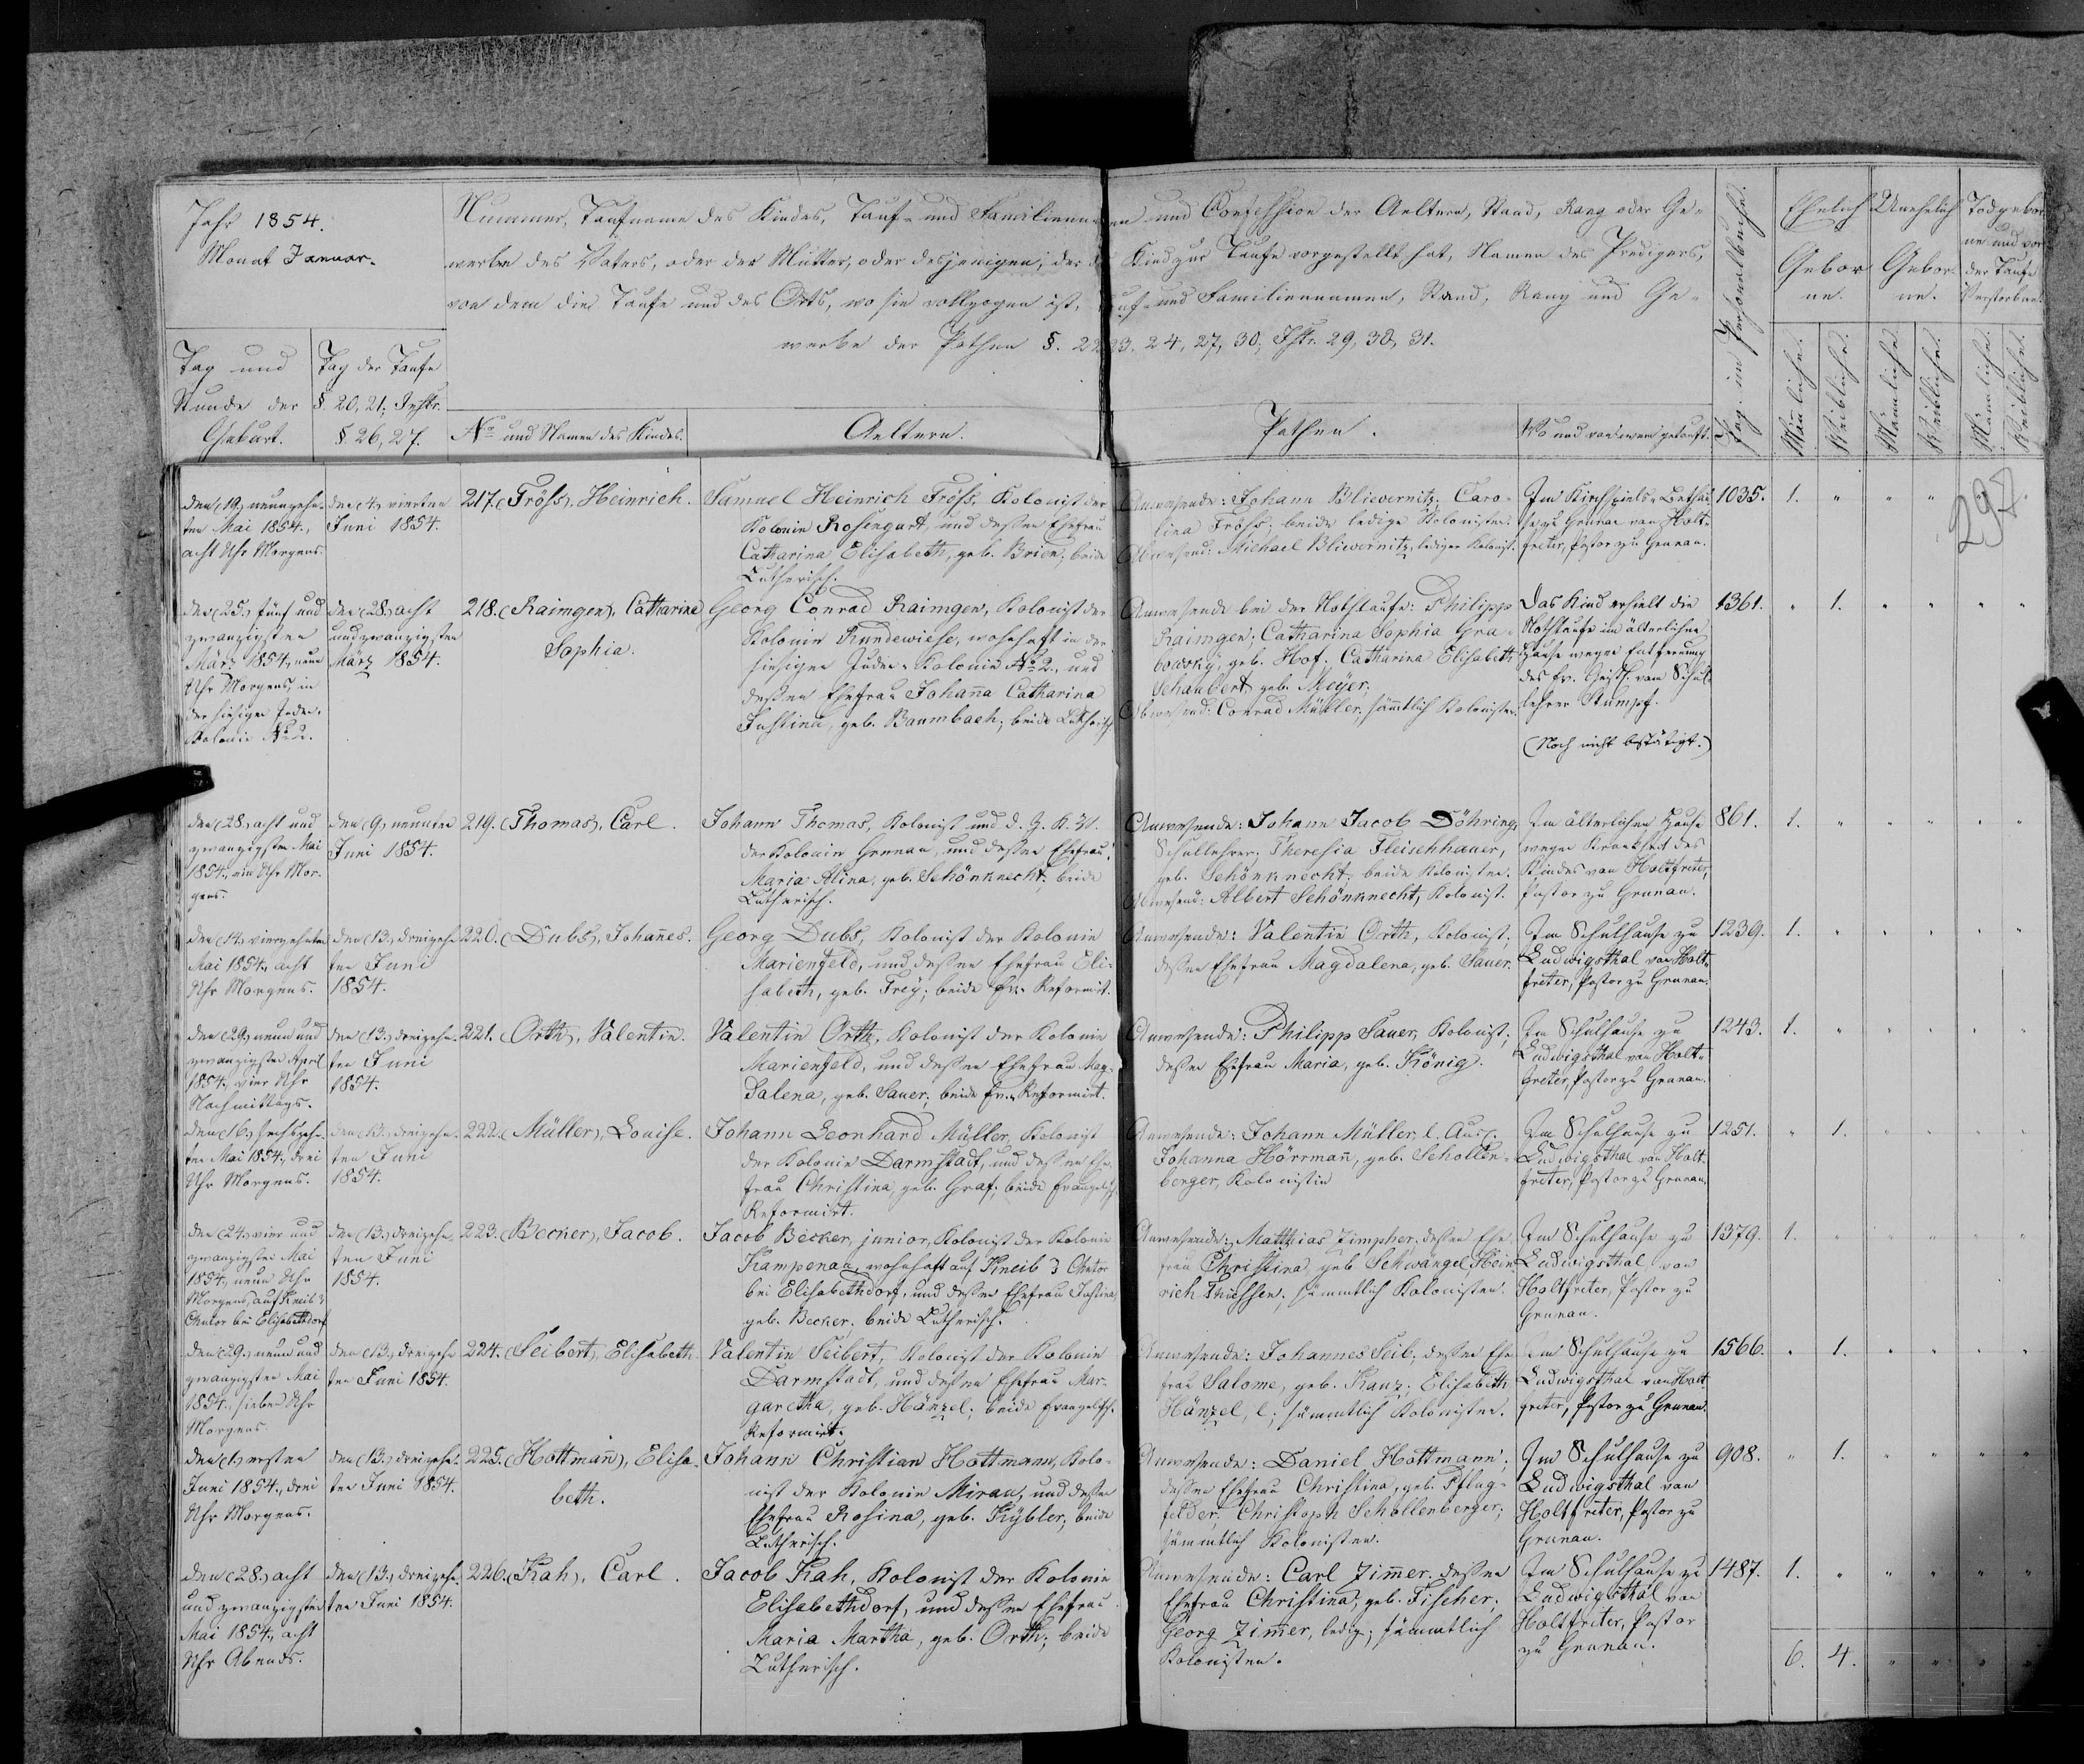 Jahr 1854.
Monat Januar.
Tag und
Stunde der
Geburt.
Tag der Taufe
§. 20, 21; Instr.
§. 26, 27.
Nummer, Taufname des Kindes, Tauf- und Familiennamen und Confession der Aeltern, Stand, Rang oder Ge-
werbe des Vaters, oder der Mutter, oder desjenigen, der das Kind zur Taufe vorgestellt hat, Namen des Predigers,
von dem die Taufe und des Orts, wo sie vollzogen ist, Tauf- und Familiennamen, Stand, Rang und Ge-
werbe der Pathen §. 22, 23, 24, 27, 30; Istr. 29, 30, 31.
No und Namen des Kindes.
Aeltern.
Pathen.
Wo und von wem getauft.
Pag. im Personalbuche.
Ehelich
Gebor
ne.
Unehelich
Gebor-
ne.
Todgebor-
ne und vor
der Taufe
Verstorbene.
Männliche.
Weibliche.
Männliche.
Weibliche.
Männliche.
Weibliche.
297
den (19.) neunzehn-
ten Mai 1854.,
acht Uhr Morgens.
den (4.) vierten
Juni 1854.
217. (Fröss), Heinrich.
Samuel Heinrich Fröss, Kolonist der
Kolonie Rosengart, und dessen Ehefrau
Catharina Elisabeth, geb. Brien; beide
Lutherisch.
Anwesende: Johann Bliewernitz; Caro-
lina Fröss; beide ledige Kolonisten.
Abwesend: Michael Bliewernitz, lediger Kolonist.
Im Kirchspiels-Bethau-
se zu Grunau von Holt-
freter, Pastor zu Grunau.
1035. 1. " " "
den (25.) fünf und
zwanzigsten
März 1854., neun
Uhr Morgens, in
der hiesigen Juden-
Kolonie No 2.
den (28.) acht
und zwanzigsten
März 1854.
218. (Raimgen), Catharina
Sophia.
Georg Conrad Raimgen, Kolonist der
Kolonie Rundewiese, wohnhaft in der
hiesigen Juden-Kolonie No 2., und
dessen Ehefrau Johanna Catharina
Justina, geb. Baumbach; beide Lutherisch.
Anwesende bei der Nothtaufe: Philipp
Raimgen; Catharina Sophia Gra-
bowsky, geb. Hof. Catharina Elisabeth
Schaubert geb. Meyer;
Abwesend: Conrad Müller; sämtlich Kolonisten.
Das Kind erhielt die
Nothtaufe im älterlichen
Hause wegen Entfernung
des Ev. Geistl. vom Schul-
lehrer Stumpf.
(Noch nicht bestätigt.)
1361. " 1. " " " "
den (28.) acht und
zwanzigsten Mai
1854., ein Uhr Mor-
gens.
den (9.) neunten
Juni 1854.
219. (Thomas), Carl.
Johann Thomas, Kolonist und d. Z. K.
der Kolonie Grunau, und dessen Ehefrau
Maria Alina, geb. Schönknecht; beide
Lutherisch.
Anwesende: Johann Jacob Döhring,
Schullehrer; Theresia Fleischhauer,
geb. Schönknecht; beide Kolonisten.
Abwesend: Albert Schönknecht, Kolonist.
Im älterlichen Hause
wegen Krankheit des
Kindes von Holtfreter,
Pastor zu Grunau.
861. 1. " " " " "
den (14.) vierzehnten
Mai 1854., acht
Uhr Morgens.
den (13.) dreizehn-
ten Juni
1854.
220. (Dubs), Johannes.
Georg Dubs, Kolonist der Kolonie
Marienfeld, und dessen Ehefrau Eli-
sabeth, geb. Frey; beide Ev.-Reformirt.
Anwesende: Valentin Orth, Kolonist;
dessen Ehefrau Magdalena, geb. Sauer.
Im Schulhause zu
Ludwigsthal von Holt-
freter, Pastor zu Grunau.
1239. 1. " " " " "
den (29.) neun und
zwanzigsten April
1854., vier Uhr
Nachmittags.
den (13.) dreizehn-
ten Juni
1854.
221. (Orth), Valentin.
Valentin Orth, Kolonist der Kolonie
Marienfeld, und dessen Ehefrau Mag-
dalena, geb. Sauer; beide Ev.-Reformirt.
Anwesende: Philipp Sauer, Kolonist;
dessen Ehefrau Maria, geb. König.
Im Schulhause zu
Ludwigsthal von Holt-
freter, Pastor zu Grunau.
1243. 1. " " " " "
den (16.) sechszehn-
ten Mai 1854., drei
Uhr Morgens.
den (13.) dreizehn-
ten Juni
1854.
222. (Müller), Louise.
Johann Leonhard Müller, Kolonist
der Kolonie Darmstadt, und dessen Ehe-
frau Christina, geb. Graf; beide Evangelisch-
Reformirt.
Anwesende: Johann Müller, l. Ausl.
Johanna Hörrmann, geb. Schollen-
berger, Kolonistin
Im Schulhause zu
Ludwigsthal von Holt-
freter, Pastor zu Grunau.
1251. " 1. " " " "
den (24.) vier und
zwanzigsten Mai
1854., neun Uhr
Morgens, auf Kneib 3
Chutor bei Elisabethdorf
den (13.) dreizehn-
ten Juni
1854.
223. (Becker), Jacob.
Jacob Becker, junior, Kolonist der Kolonie
Kampenau, wohnhaft auf Kneib 3 Chutor
bei Elisabethdorf, und dessen Ehefrau Justina,
geb. Becker; beide Lutherisch.
Anwesende: Matthias Zimpher; dessen Ehe-
frau Christina, geb Schwängel; Hein-
rich Thiessen; sämmtlich Kolonisten.
Im Schulhause zu
Ludwigsthal von
Holtfreter, Pastor zu
Grunau.
1379. 1. " " " " "
den (29.) neun und
zwanzigsten Mai
1854., sieben Uhr
Morgens.
den (13.) dreizehn-
ten Juni 1854.
224. (Seibert), Elisabeth
Valentin Seibert, Kolonist der Kolonie
Darmstadt, und dessen Ehefrau Mar-
garetha, geb. Hänzel; beide Evangelisch-
Reformirt.
Anwesende: Johannes Seib; dessen Ehe-
frau Salome, geb. Kanz; Elisabeth
Hänzel, l.; sämmtlich Kolonisten.
Im Schulhause zu
Ludwigsthal von Holt-
freter, Pastor zu Grunau.
1566. " 1. " " " "
den (1.) ersten
Juni 1854., drei
Uhr Morgens.
den (13.) dreizehn-
ten Juni 1854.
225. (Hottmann), Elisa-
beth.
Johann Christian Hottmann, Kolo-
nist der Kolonie Mirau, und dessen
Ehefrau Rosina, geb. Kybler; beide
Lutherisch.
Anwesende: Daniel Hottmann;
dessen Ehefrau Christina, geb. Pflug-
felder; Christoph Schollenberger;
sämmtlich Kolonisten.
Im Schulhause zu
Ludwigsthal von
Holtfreter, Pastor zu
Grunau.
908. " 1. " " " "
den (28.) acht
und zwanzigsten
Mai 1854., acht
Uhr Abends.
den (13.) dreizehn-
ten Juni 1854.
226. (Kah), Carl.
Jacob Kah, Kolonist der Kolonie
Elisabethdorf, und dessen Ehefrau
Maria Martha, geb. Orth; beide
Lutherisch.
Anwesende: Carl Zimmer; dessen
Ehefrau Christina, geb. Fischer;
Georg Zimmer, ledig; sämmtlich
Kolonisten.
Im Schulhause zu
Ludwigsthal von
Holtfreter, Pastor
zu Grunau.
1487. 1. " " " " "
6. 4. " " " "